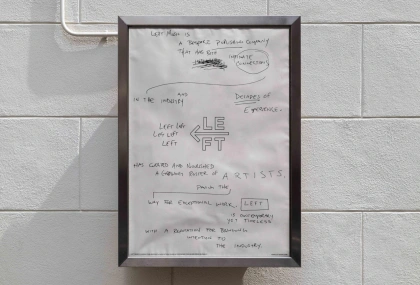 LEFT MUSIC IS
A BESPOKE PUBLISHING COMPANY
THAT HAS BOTH
INFINITE
CONNECTIONS
IN THE INDUSTRY AND
DECADES OF
EXPERIENCE.
LEFT LEFT
LEFT LEFT
LEFT
LE
FT
HAS CURATED AND NOURISHED
A GROWING ROSTER OF ARTISTS.
PAVING THE
WAY FOR EXCEPTIONAL WORK. LEFT
IS CONTEMPORARY
YET TIMELESS
WITH A REPUTATION FOR BRINGING
INTUITION TO
THE INDUSTRY.